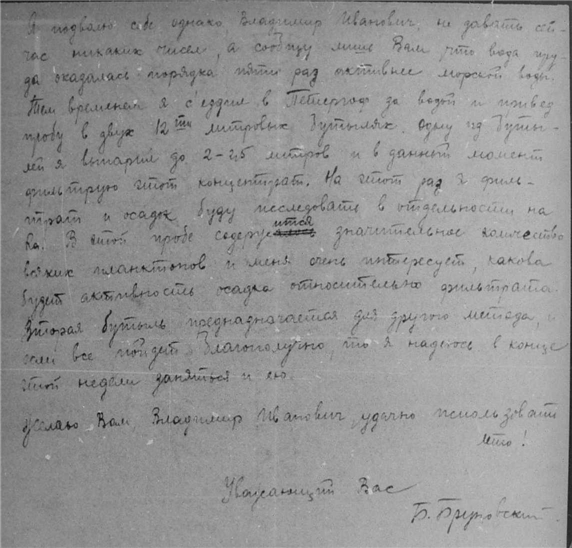 Я позволю себе однако, Владимир Иванович, не давать сей-
час никаких чисел, а сообщу лише Вам что вода пру-
да оказалась порядка пяти раз активнее морской воды.
Тем временем я съездил в Петергоф за водой и привез
пробу в двух 12ти литровых бутылях. Одну из буты-
лей я выпарил до 2-2,5 литров и в данный момент
фильтрую этот концентрат. На этот раз я филь-
трат и осадок буду исследовать в отдельности на
Ra! В этой пробе содержится значительное количество
всяких планктонов и меня очень интересует, какова
будет активность осадка относительно фильтрата.
Вторая бутыль предназначается для другого метода, и
если все пойдет благополучно, то я надеюсь в конце
этой недели заняться и ею.
Желаю Вам, Владимир Иванович, удачно использовать
лето!
Уважающий Вас
Б. Бруновский.